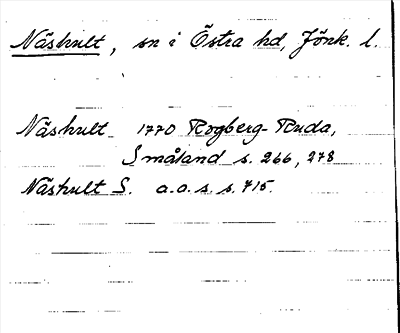 Näshult, sn i Östra hd, Jönk. l.
Näshult 1770 Rogberg-Ruda,
Småland s. 266, 278
Näshult S. a.a. s. s. 715.